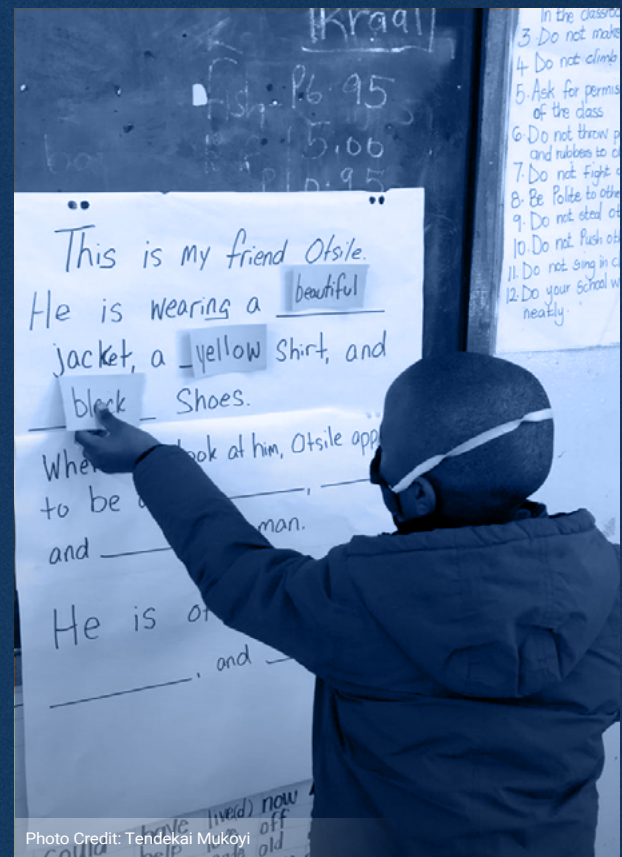 Kraal
Fish P6.95
15.00
This is my friend Otsile.
He is wearing a beautiful
jacket, a yellow shirt, and
black shoes.
When ook at him, Otsile app
to be
and man.
He is of
, and
in the classroo
3. Do not make
4. Do not climb
5. Ask for permis
of the class
6. Do not throw p
and rubbers to o
7. Do not fight
8. Be Polite to othe
9. Do not steal ot
10. Do not Push ot
11. Do not sing in c
12. Do your school w
neatly.
could have live(d) now
help off
old
Photo Credit: Tendekai Mukoyi